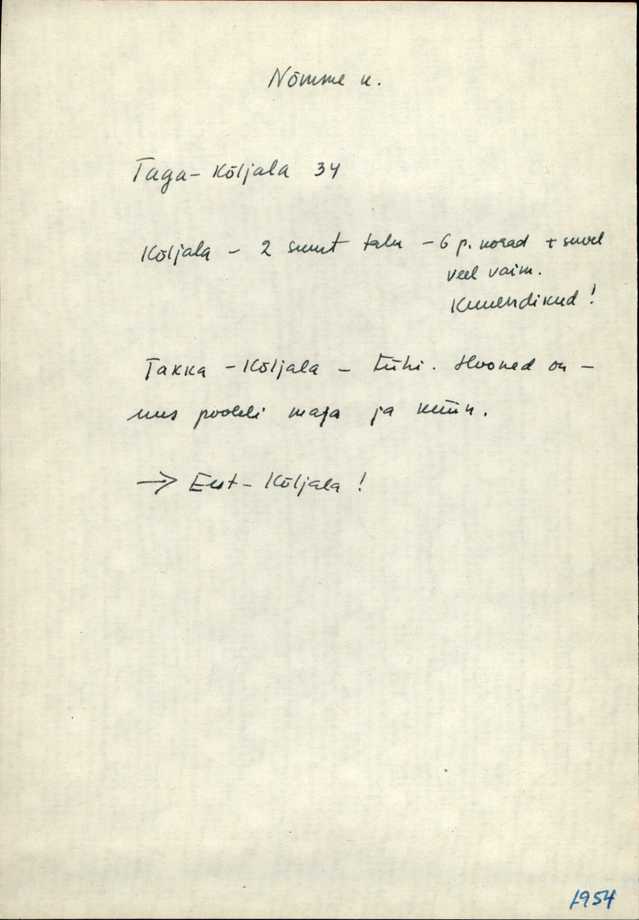 Nõmme k.
Taga-Kõljala 34
Kõljala - 2 suurt talu - 6 p. korad + suvel
veel vaim.
Kuuendikud!
Takka-Kõljala - tühi. Hooned on -
uus pooleli maja ja küün.
→ Eest-Kõljala!
1954